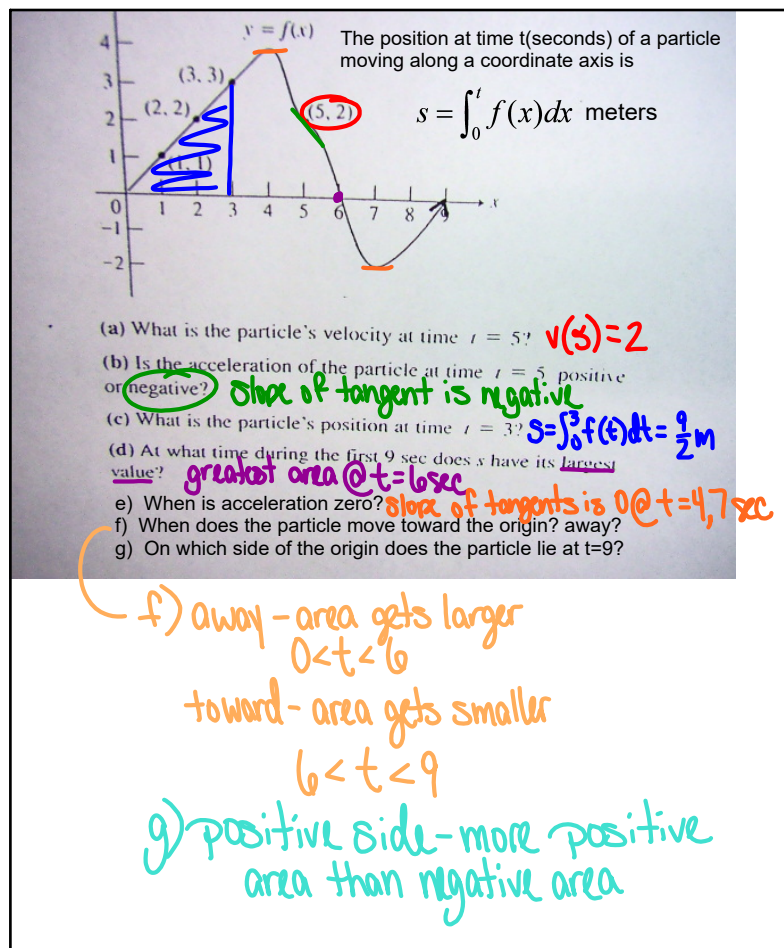 y = f(x)
The position at time t(seconds) of a particle
moving along a coordinate axis is
s = ∫₀ᵗ f(x)dx meters
4
3
2
1
0
−1
−2
(3, 3)
(2, 2)
(1, 1)
(5, 2)
1 2 3 4 5 6 7 8 9 x
(a) What is the particle's velocity at time t = 5? v(5)=2
(b) Is the acceleration of the particle at time t = 5 positive
or negative? slope of tangent is negative
(c) What is the particle's position at time t = 3? s=∫₀³f(t)dt = 9/2 m
(d) At what time during the first 9 sec does s have its largest
value? greatest area @ t=6sec
e) When is acceleration zero? slope of tangents is 0 @ t=4,7 sec
f) When does the particle move toward the origin? away?
g) On which side of the origin does the particle lie at t=9?
f) away - area gets larger
0<t<6
toward - area gets smaller
6<t<9
g) positive side - more positive
area than negative area